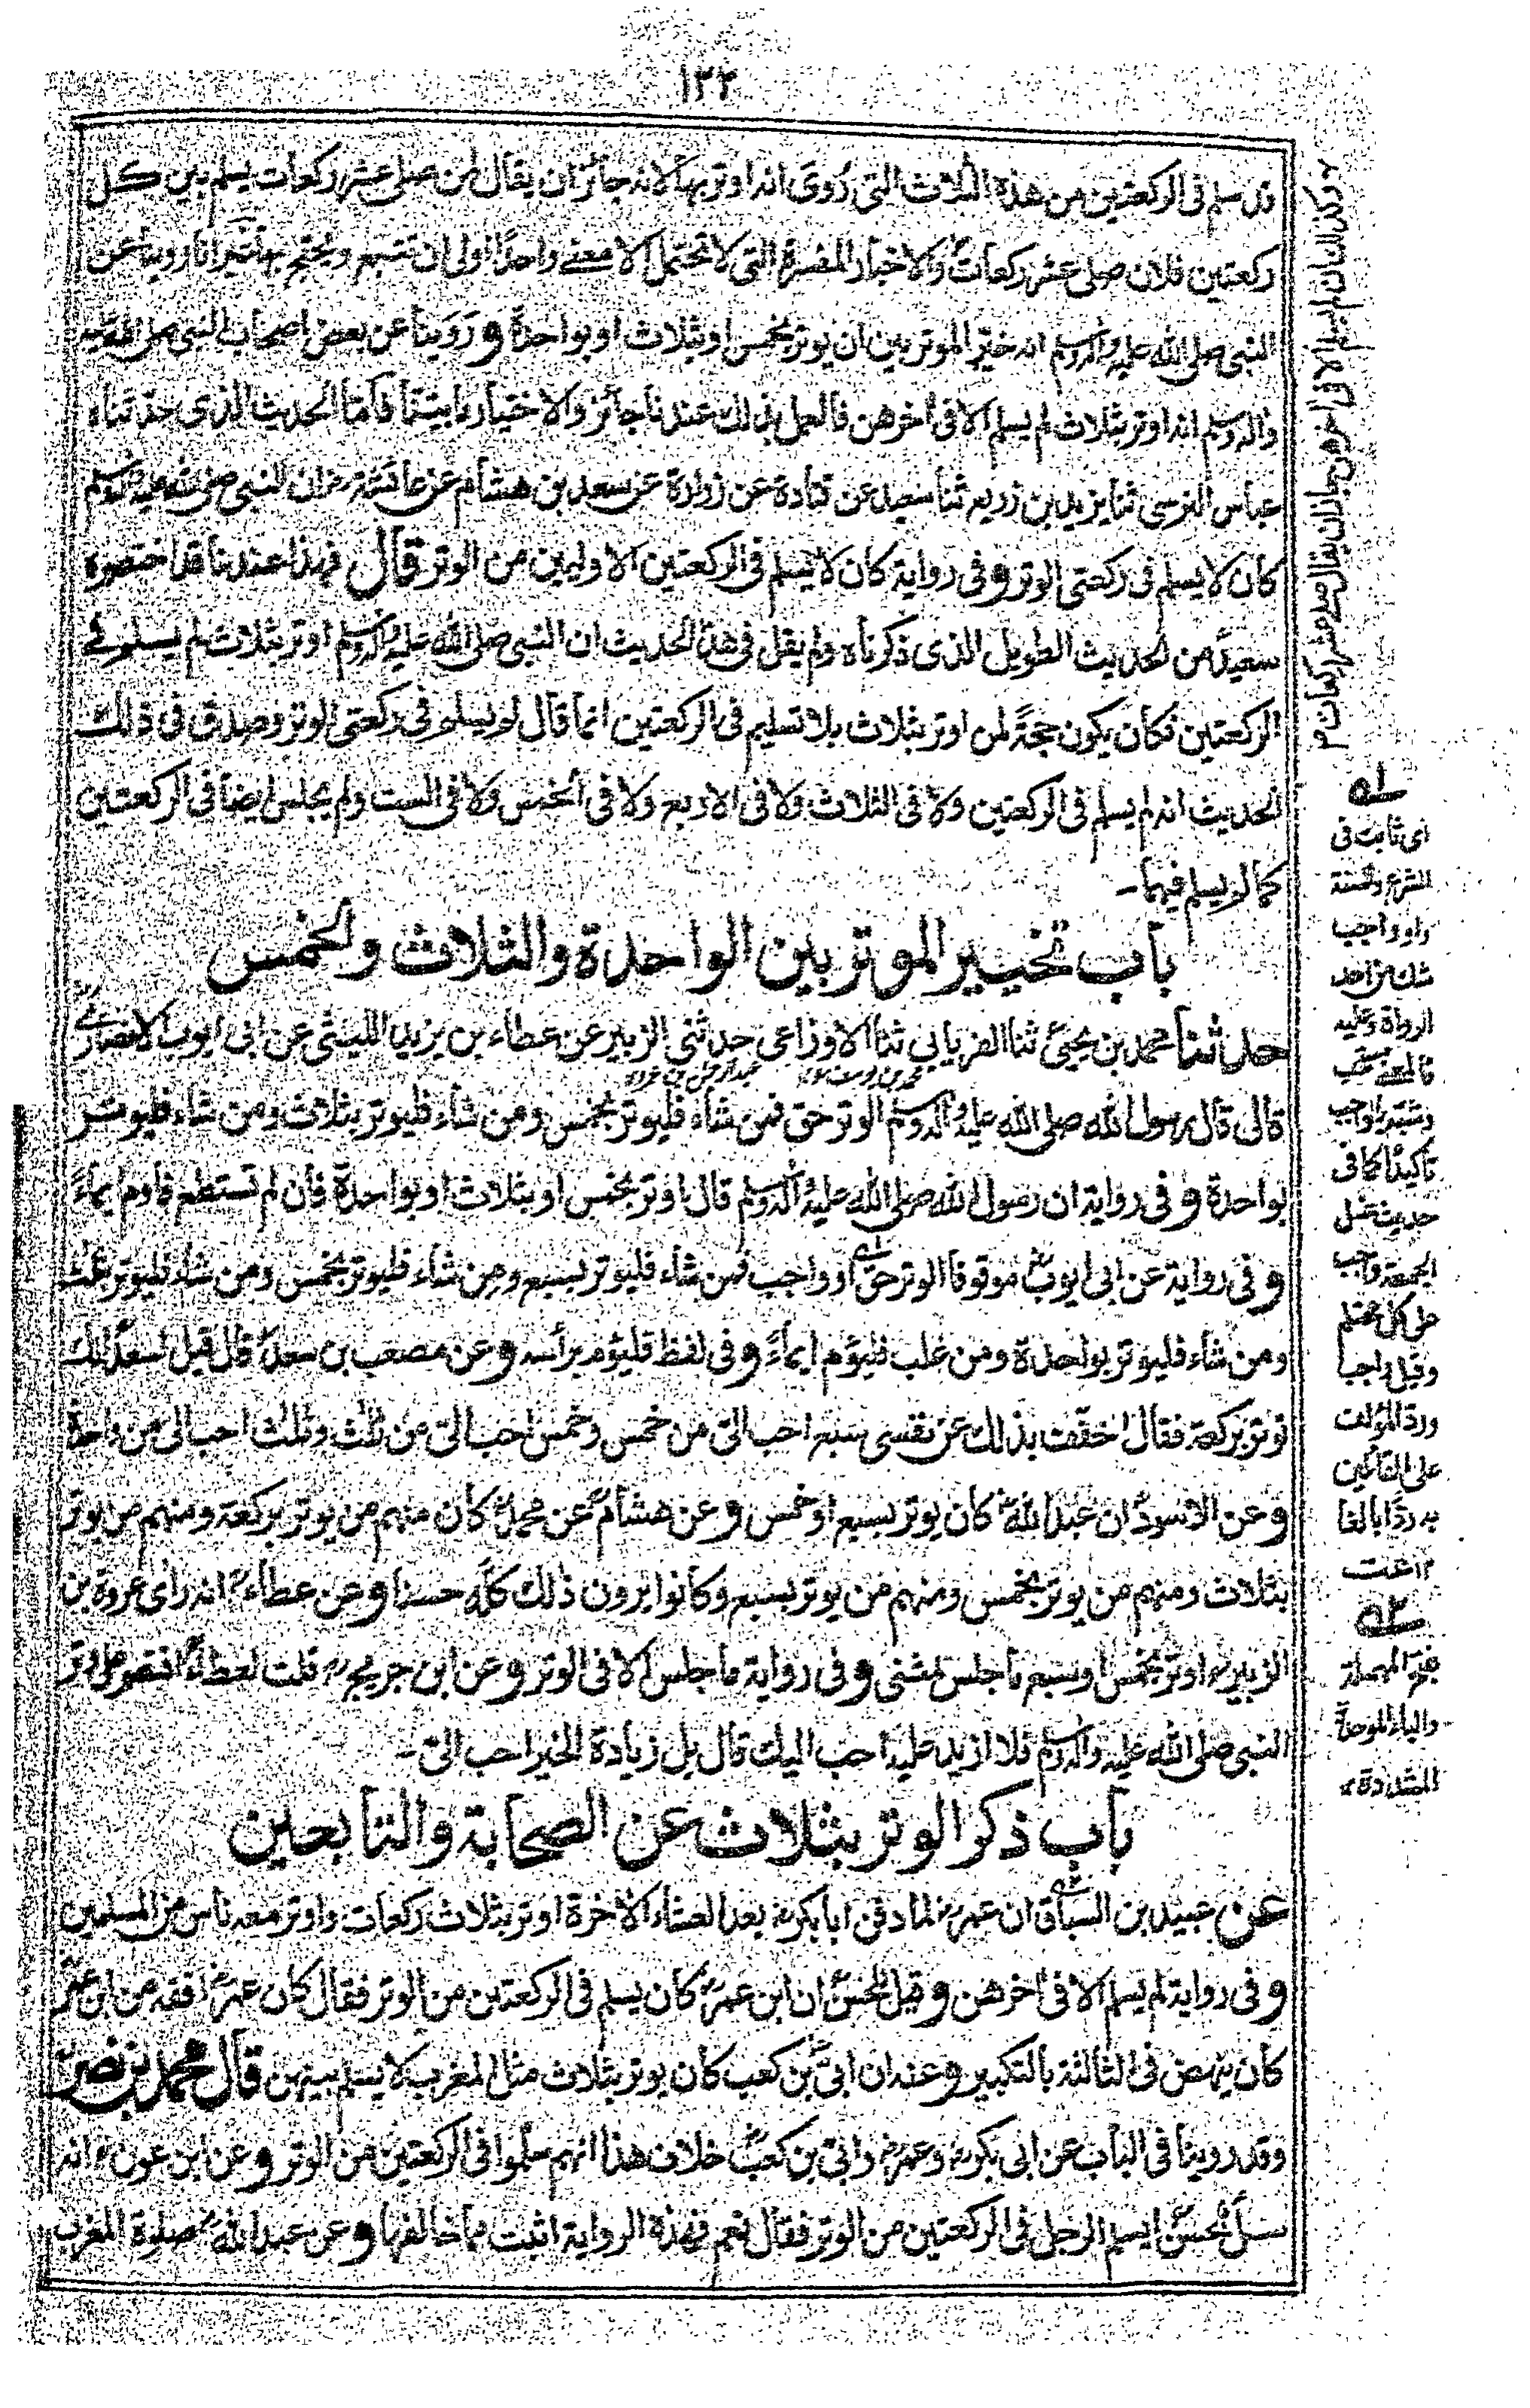 ١٢٢
قد سلم فى الركعتين من هذة الثلاث التى رُوى انه اوتر بها لانه جائز ان يقال لمن صلى عشر ركعات يسلم بين كل
ركعتين فلان صلى عشر ركعات والاخبار المفسرة التى لا تحتمل الا معنى واحدًا اولى ان تتبع ويحتج بها غير انا روينا عن
النبى صلى الله عليه واله وسلم انه خير الموتر بين ان يوتر بخمس او بثلاث او بواحدة و روينا عن بعض اصحاب النبى صلى الله عليه
واله وسلم انه اوتر بثلاث لم يسلم الا فى أخرهن فالعمل بذلك عندنا جائز والاختيار ما بينّا فاما الحديث الذى حدثناه
عباس النرسى ثنا يزيد بن زريع ثنا سعيد عن قتادة عن زرارة عن سعد بن هشام عن عائشة ان النبى صلى الله عليه واله وسلم
كان لا يسلم فى ركعتى الوتر و فى رواية كان لا يسلم فى الركعتين الاوليين من الوتر قال فهذا عندنا قد اختصره
سعيد من الحديث الطويل الذى ذكرناه ولم يقل فى هذا الحديث ان النبى صلى الله عليه واله وسلم اوتر بثلاث لم يسلم فى
الركعتين فكان يكون حجة لمن اوتر بثلاث بلا تسليم فى الركعتين انما قال لم يسلم فى ركعتى الوتر وصدق فى ذلك
الحديث انه لم يسلم فى الركعتين ولا فى الثلاث ولا فى الاربع ولا فى الخمس ولا فى الست ولم يجلس ايضا فى الركعتين
كما لم يسلم فيهما-
باب تخيير الموتر بين الواحدة والثلاث والخمس
حدثنا محمد بن يحيىٰ ثنا الفريابي ثنا الاوزاعى حدثنى الزبير عن عطاء بن يزيد الليثى عن ابى ايوب الانصارى
قال قال رسول الله صلى الله عليه واله وسلم الوتر حق فمن شاء فليوتر بخمس ومن شاء فليوتر بثلاث ومن شاء فليوتر
بواحدة و فى رواية ان رسول الله صلى الله عليه واله وسلم قال اوتر بخمس او بثلاث او بواحدة فان لم تستطع فاوم ايماءً
و فى رواية عن ابى ايوب موقوفا الوتر حق او واجب فمن شاء فليوتر بسبع ومن شاء فليوتر بخمس ومن شاء فليوتر بثلث
ومن شاء فليوتر بواحدة ومن غلب فليؤم ايماءً و فى لفظ فليؤم برأسه و عن مصعب بن سعد قال قيل لسعد انك
توتر بركعة فقال اخفف بذلك عن نفسى سبع احب الىّ من خمس وخمس احب الىّ من ثلث وثلث احب الى من واحدة
و عن الاسود ان عبد الله كان يوتر بسبع او خمس و عن هشام عن محمد كان منهم من يوتر بركعة ومنهم من يوتر
بثلاث ومنهم من يوتر بخمس ومنهم من يوتر بسبع وكانوا يرون ذلك كله حسنا و عن عطاء انه راى عروة بن
الزبير اوتر بخمس او سبع ما جلس لمثنى و فى رواية ما جلس الا فى الوتر و عن ابن جريج قلت لعطاء اقتصر على وتر
النبى صلى الله عليه واله وسلم فلا ازيد عليه احب اليك قال بل زيادة الخير احب الىّ-
باب ذكر الوتر بثلاث عن الصحابة والتابعين
عن عبيد بن السباق ان عمر لما دفن ابا بكر بعد العشاء الاخرة اوتر بثلاث ركعات واوتر معه ناس من المسلمين
و فى رواية لم يسلم الا فى اخرهن و قيل للحسن ان ابن عمر كان يسلم فى الركعتين من الوتر فقال كان عمر افقه من ابن عمر
كان ينهض فى الثالثة بالتكبير و عنه ان ابىّ بن كعب كان يوتر بثلاث مثل المغرب لا يسلم بينهن قال محمد بن نصر
وقد روينا فى الباب عن ابى بكر وعمر وابىّ بن كعب خلاف هذا انهم سلموا فى الركعتين من الوتر و عن ابن عون انه
سأل الحسن ايسلم الرجل فى الركعتين من الوتر فقال نعم فهذة الرواية اثبت مما خالفها و عن عبد الله صلوة المغرب
وكذلك ان لم يسلم الا فى اخرهن جاز ان يقال صلى عشر ركعات
ـ١ـه
اى ثابت فى
الشرع والسنة
او واجب
شك من احد
الرواة وعليه
فالمعنى
وشبه بالواجب
تاكيدًا كما فى
حديث غسل
الجمعة واجب
على كل محتلم
وقيل واجب
ورد المؤلف
على القائلين
به ردًا بالغا
ـ٢ـه
المهملة
والباء الموحدة
المشددة